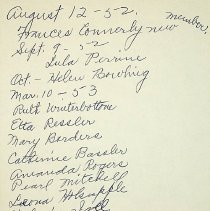 August 12-52.
Frances Connerly new member.
Sept. 9-52
Lula Perrine
Oct.- Helen Bowling
Mar. 10-53
Ruth Winterbottom
Etta Ressler
Mary Borders
Catherine Bassler
Amanda Rogers
Pearl Mitchell
Leona Holsapple